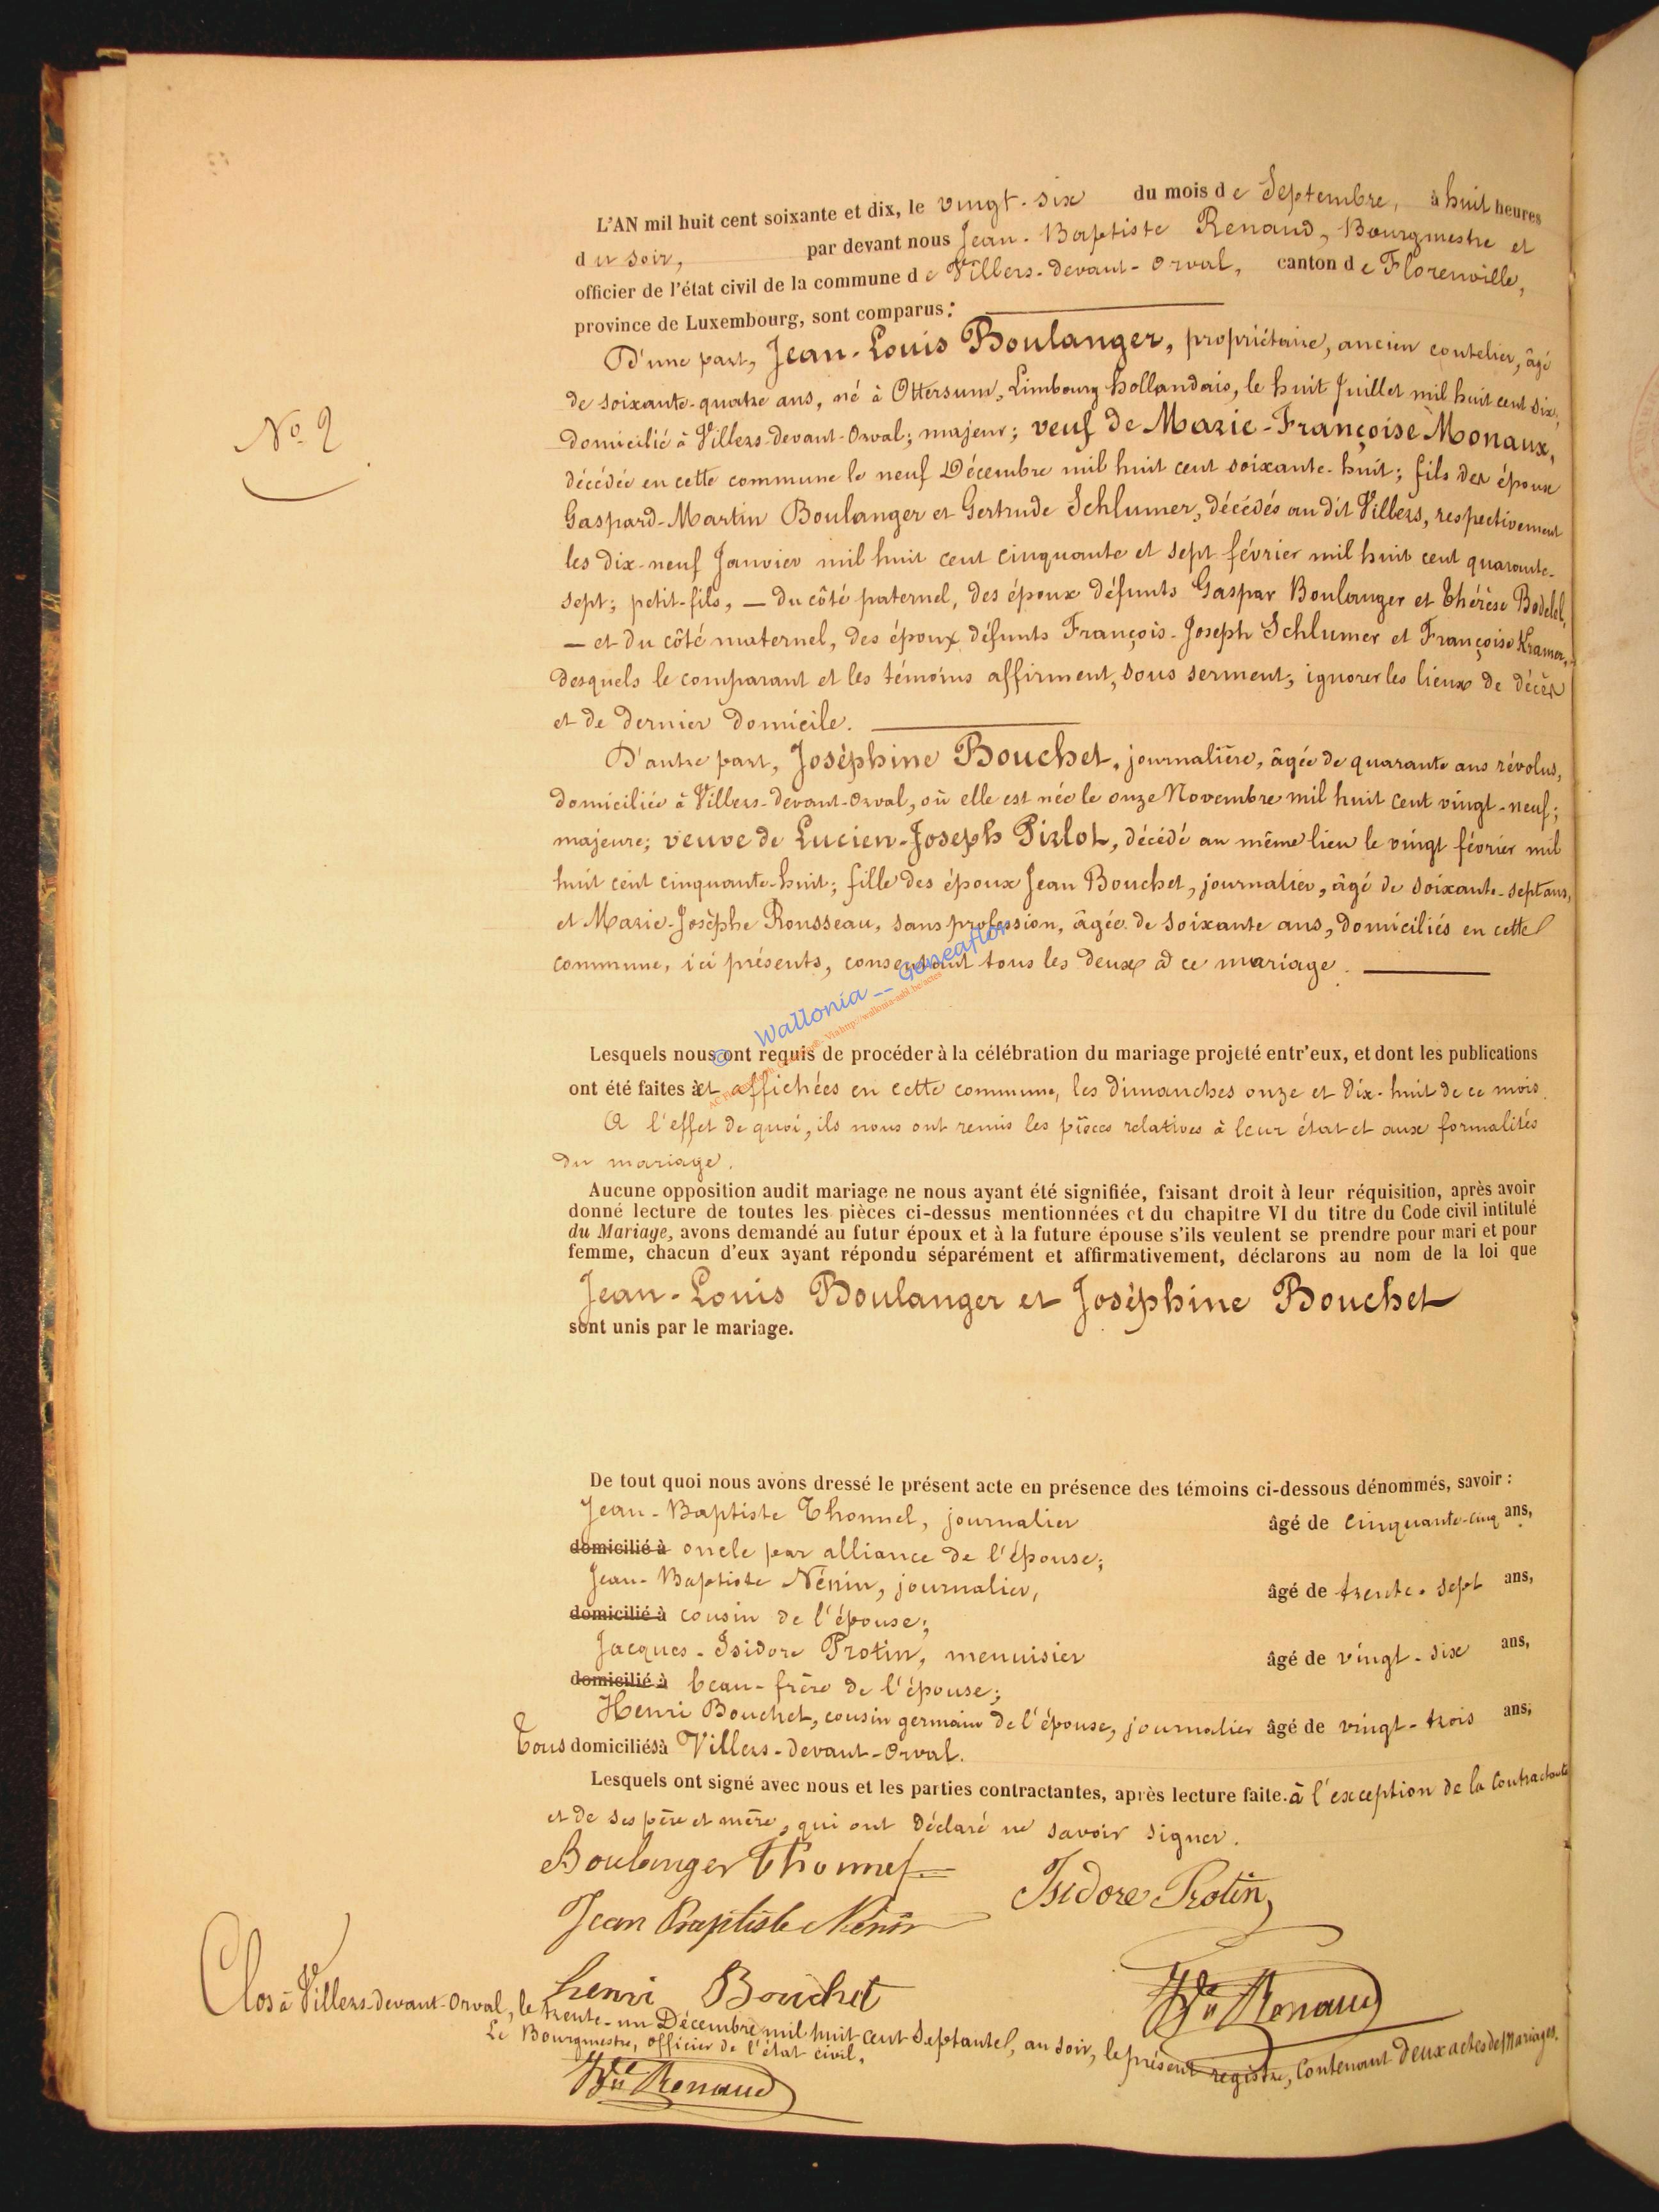 L'AN mil huit cent soixante et dix, le vingt-six du mois de Septembre, à huit heures
du soir, par devant nous Jean-Baptiste Renaud, Bourgmestre et
officier de l'état civil de la commune de Villers-devant-Orval, canton de Florenville,
province de Luxembourg, sont comparus :
D'une part, Jean-Louis Boulanger, propriétaire, ancien coutelier, âgé
de soixante-quatre ans, né à Ottersum, Limbourg hollandais, le huit Juillet mil huit cent six,
N° 2
domicilié à Villers-devant-Orval; majeur; veuf de Marie-Françoise Monaux,
décédée en cette commune le neuf Décembre mil huit cent soixante-huit; fils des époux
Gaspard-Martin Boulanger et Gertrude Schlumer, décédés au dit Villers, respectivement
les dix-neuf Janvier mil huit cent cinquante et sept février mil huit cent quarante-
sept; petit-fils, — du côté paternel, des époux défunts Gaspar Boulanger et Thérèse Bodelel,
— et du côté maternel, des époux défunts François-Joseph Schlumer et Françoise Kramer,
desquels le comparant et les témoins affirment, sous serment, ignorer les lieux de décès
et de dernier domicile.
D'autre part, Joséphine Bouchet, journalière, âgée de quarante ans révolus,
domiciliée à Villers-devant-Orval, où elle est née le onze Novembre mil huit cent vingt-neuf;
majeure; veuve de Lucien-Joseph Pirlot, décédé au même lieu le vingt février mil
huit cent cinquante-huit; fille des époux Jean Bouchet, journalier, âgé de soixante-sept ans,
et Marie-Josèphe Rousseau, sans profession, âgée de soixante ans, domiciliés en cette
commune, ici présents, consentant tous les deux à ce mariage.
© Wallonia -- Geneaflor
Via http://wallonia-asbl.be/actes
Lesquels nous ont requis de procéder à la célébration du mariage projeté entr'eux, et dont les publications
ont été faites à et affichées en cette commune, les dimanches onze et dix-huit de ce mois.
A l'effet de quoi, ils nous ont remis les pièces relatives à leur état et aux formalités
du mariage.
Aucune opposition audit mariage ne nous ayant été signifiée, faisant droit à leur réquisition, après avoir
donné lecture de toutes les pièces ci-dessus mentionnées et du chapitre VI du titre du Code civil intitulé
du Mariage, avons demandé au futur époux et à la future épouse s'ils veulent se prendre pour mari et pour
femme, chacun d'eux ayant répondu séparément et affirmativement, déclarons au nom de la loi que
Jean-Louis Boulanger et Joséphine Bouchet
sont unis par le mariage.
De tout quoi nous avons dressé le présent acte en présence des témoins ci-dessous dénommés, savoir :
Jean-Baptiste Thonnel, journalier âgé de cinquante-cinq ans,
domicilié à oncle par alliance de l'épouse;
Jean-Baptiste Nénin, journalier, âgé de trente-sept ans,
domicilié à cousin de l'épouse;
Jacques-Isidore Protin, menuisier âgé de vingt-six ans,
domicilié à beau-frère de l'épouse;
Henri Bouchet, cousin germain de l'épouse, journalier âgé de vingt-trois ans;
Tous domiciliés à Villers-devant-Orval.
Lesquels ont signé avec nous et les parties contractantes, après lecture faite. à l'exception de la Contractante
et de ses père et mère, qui ont déclaré ne savoir signer.
Boulanger Thonnel
Isidore Protin
Jean Baptiste Nénin
henri Bouchet
Renaud
Clos à Villers-devant-Orval, le trente-un Décembre mil huit cent Septante, au soir, le présent registre, Contenant deux actes de Mariages.
Le Bourgmestre, officier de l'état civil,
Renaud